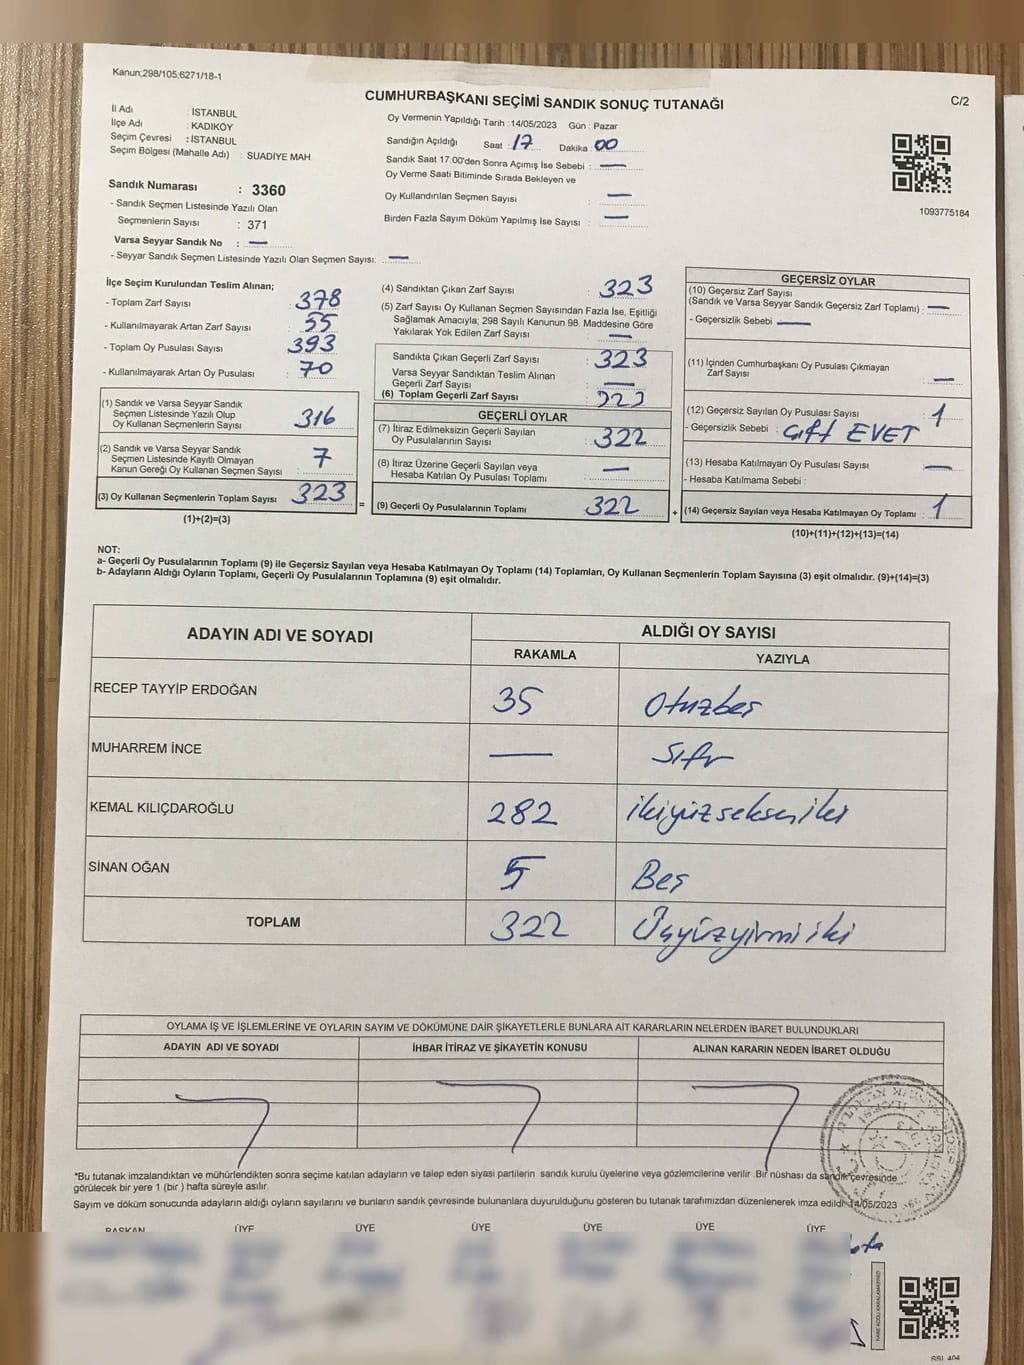 Kanun;298/105;6271/18-1
CUMHURBAŞKANI SEÇİMİ SANDIK SONUÇ TUTANAĞI
C/2
İl Adı : İSTANBUL
İlçe Adı : KADIKÖY
Seçim Çevresi : İSTANBUL
Seçim Bölgesi (Mahalle Adı) : SUADİYE MAH.
Sandık Numarası : 3360
- Sandık Seçmen Listesinde Yazılı Olan
Seçmenlerin Sayısı : 371
Varsa Seyyar Sandık No : —
- Seyyar Sandık Seçmen Listesinde Yazılı Olan Seçmen Sayısı: —
Oy Vermenin Yapıldığı Tarih :14/05/2023 Gün : Pazar
Sandığın Açıldığı Saat : 17 Dakika : 00
Sandık Saat 17:00'den Sonra Açımış İse Sebebi : —
Oy Verme Saati Bitiminde Sırada Bekleyen ve
Oy Kullandırılan Seçmen Sayısı : —
Birden Fazla Sayım Döküm Yapılmış İse Sayısı : —
1093775184
İlçe Seçim Kurulundan Teslim Alınan;
- Toplam Zarf Sayısı : 378
- Kullanılmayarak Artan Zarf Sayısı : 55
- Toplam Oy Pusulası Sayısı : 393
- Kullanılmayarak Artan Oy Pusulası : 70
(1) Sandık ve Varsa Seyyar Sandık
Seçmen Listesinde Yazılı Olup
Oy Kullanan Seçmenlerin Sayısı : 316
(2) Sandık ve Varsa Seyyar Sandık
Seçmen Listesinde Kayıtlı Olmayan
Kanun Gereği Oy Kullanan Seçmen Sayısı : 7
(3) Oy Kullanan Seçmenlerin Toplam Sayısı : 323
(1)+(2)=(3)
=
(4) Sandıktan Çıkan Zarf Sayısı : 323
(5) Zarf Sayısı Oy Kullanan Seçmen Sayısından Fazla İse, Eşitliği
Sağlamak Amacıyla; 298 Sayılı Kanunun 98. Maddesine Göre
Yakılarak Yok Edilen Zarf Sayısı : —
Sandıkta Çıkan Geçerli Zarf Sayısı : 323
Varsa Seyyar Sandıktan Teslim Alınan
Geçerli Zarf Sayısı : —
(6) Toplam Geçerli Zarf Sayısı : 323
GEÇERLİ OYLAR
(7) İtiraz Edilmeksizin Geçerli Sayılan
Oy Pusulalarının Sayısı : 322
(8) İtiraz Üzerine Geçerli Sayılan veya
Hesaba Katılan Oy Pusulası Toplamı : —
(9) Geçerli Oy Pusulalarının Toplamı : 322
+
GEÇERSİZ OYLAR
(10) Geçersiz Zarf Sayısı
(Sandık ve Varsa Seyyar Sandık Geçersiz Zarf Toplamı) : —
- Geçersizlik Sebebi : —
(11) İçinden Cumhurbaşkanı Oy Pusulası Çıkmayan
Zarf Sayısı : —
(12) Geçersiz Sayılan Oy Pusulası Sayısı : 1
- Geçersizlik Sebebi : Çift EVET
(13) Hesaba Katılmayan Oy Pusulası Sayısı : —
- Hesaba Katılmama Sebebi :
(14) Geçersiz Sayılan veya Hesaba Katılmayan Oy Toplamı : 1
(10)+(11)+(12)+(13)=(14)
NOT:
a- Geçerli Oy Pusulalarının Toplamı (9) ile Geçersiz Sayılan veya Hesaba Katılmayan Oy Toplamı (14) Toplamları, Oy Kullanan Seçmenlerin Toplam Sayısına (3) eşit olmalıdır. (9)+(14)=(3)
b- Adayların Aldığı Oyların Toplamı, Geçerli Oy Pusulalarının Toplamına (9) eşit olmalıdır.
ADAYIN ADI VE SOYADI
ALDIĞI OY SAYISI
RAKAMLA YAZIYLA
RECEP TAYYİP ERDOĞAN 35 Otuzbeş
MUHARREM İNCE — Sıfır
KEMAL KILIÇDAROĞLU 282 ikiyüzseksen iki
SİNAN OĞAN 5 Beş
TOPLAM 322 Üçyüzyirmi iki
OYLAMA İŞ VE İŞLEMLERİNE VE OYLARIN SAYIM VE DÖKÜMÜNE DAİR ŞİKAYETLERLE BUNLARA AİT KARARLARIN NELERDEN İBARET BULUNDUKLARI
ADAYIN ADI VE SOYADI İHBAR İTİRAZ VE ŞİKAYETİN KONUSU ALINAN KARARIN NEDEN İBARET OLDUĞU
*Bu tutanak imzalandıktan ve mühürlendikten sonra seçime katılan adayların ve talep eden siyasi partilerin sandık kurulu üyelerine veya gözlemcilerine verilir .Bir nüshası da sandık çevresinde
görülecek bir yere 1 (bir ) hafta süreyle asılır.
Sayım ve döküm sonucunda adayların aldığı oyların sayılarını ve bunların sandık çevresinde bulunanlara duyurulduğunu gösteren bu tutanak tarafımızdan düzenlenerek imza edildi. 14/05/2023
BAŞKAN ÜYE ÜYE ÜYE ÜYE ÜYE ÜYE